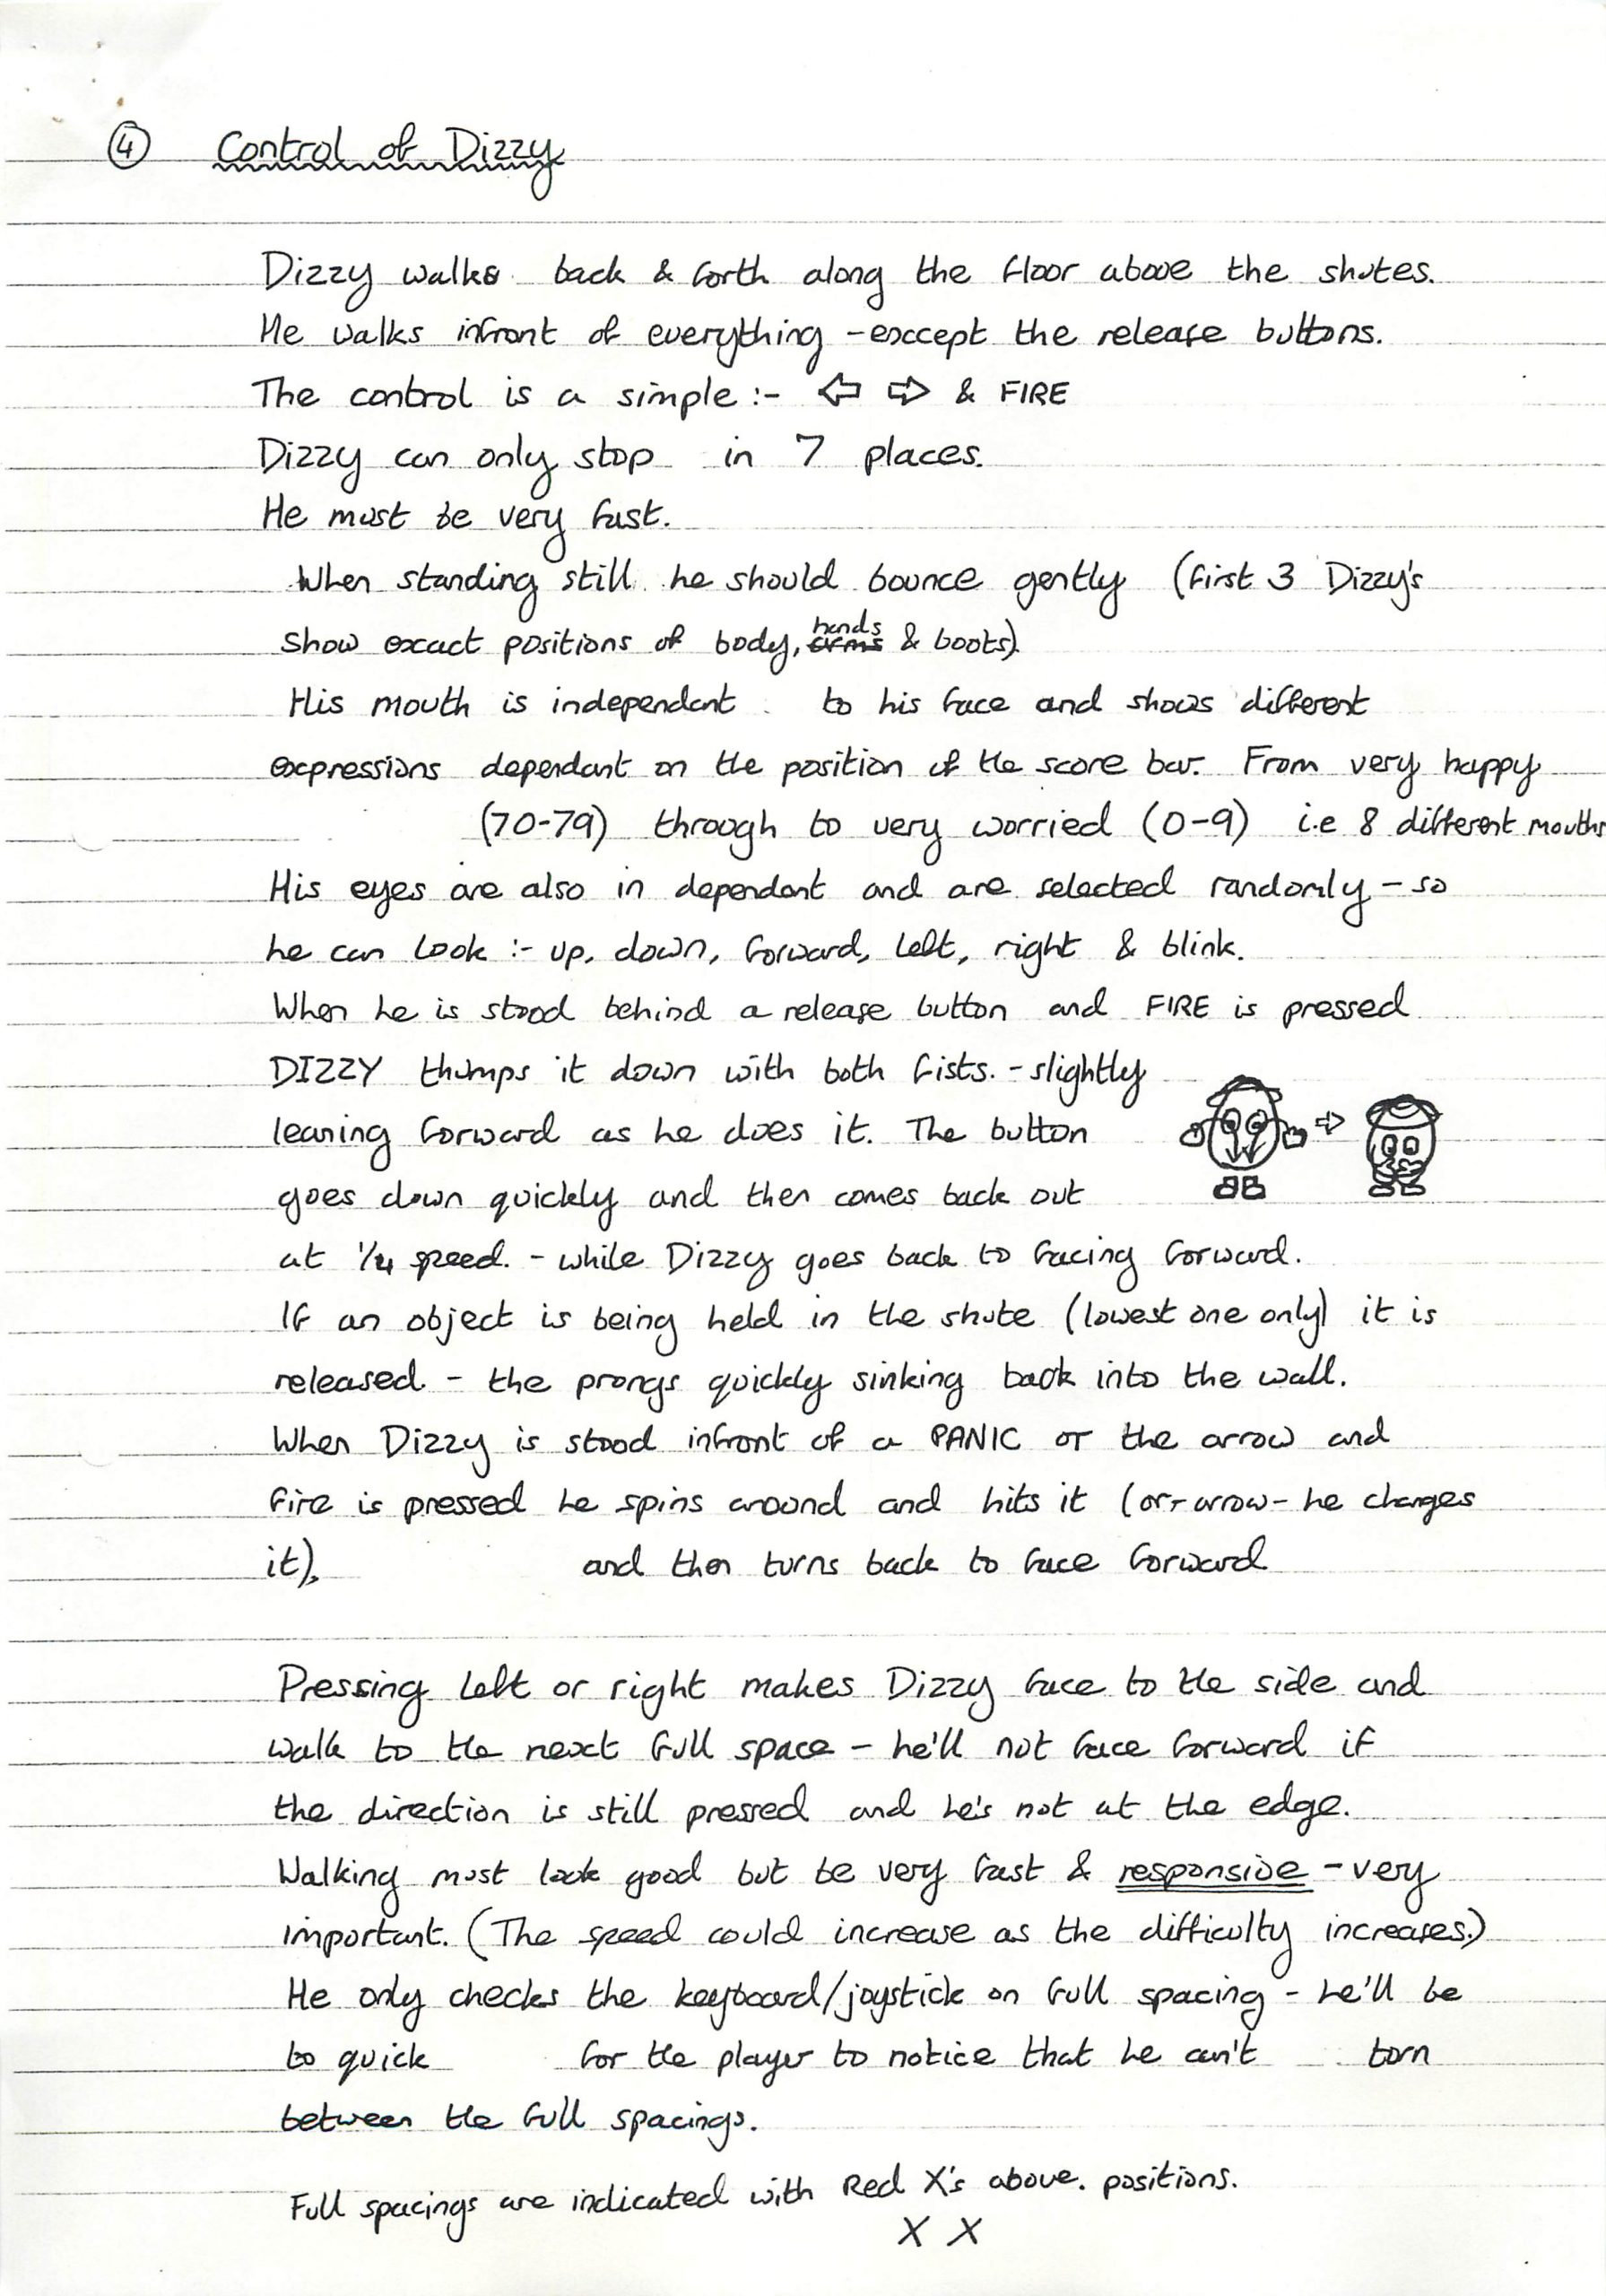 ④ Control of Dizzy
Dizzy walks back & forth along the floor above the shutes.
He walks infront of everything - except the release buttons.
The control is a simple :- ⇦ ⇨ & FIRE
Dizzy can only stop in 7 places.
He must be very fast.
When standing still he should bounce gently (first 3 Dizzy's
hands
show exact positions of body, arms & boots).
His mouth is independant to his face and shows different
expressions dependant on the position of the score bar. From very happy
(70-79) through to very worried (0-9) i.e 8 different mouths
His eyes are also in dependant and are selected randomly - so
he can look :- up, down, forward, left, right & blink.
When he is stood behind a release button and FIRE is pressed
DIZZY thumps it down with both fists. - slightly
leaning forward as he does it. The button
⇨
goes down quickly and then comes back out
at 1/4 speed. - while Dizzy goes back to facing forward.
If an object is being held in the shute (lowest one only) it is
released - the prongs quickly sinking back into the wall.
When Dizzy is stood infront of a PANIC or the arrow and
fire is pressed he spins around and hits it (or - arrow - he changes
it), and then turns back to face forward
Pressing left or right makes Dizzy face to the side and
walk to the next full space - he'll not face forward if
the direction is still pressed and he's not at the edge.
Walking must look good but be very fast & responsive - very
important. (The speed could increase as the difficulty increases.)
He only checks the keyboard/joystick on full spacing - he'll be
to quick for the player to notice that he can't turn
between the full spacings.
Full spacings are indicated with Red X's above. positions.
X X